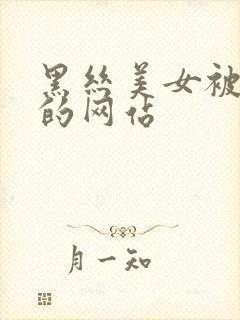 黑丝美女被
的网站
月一知